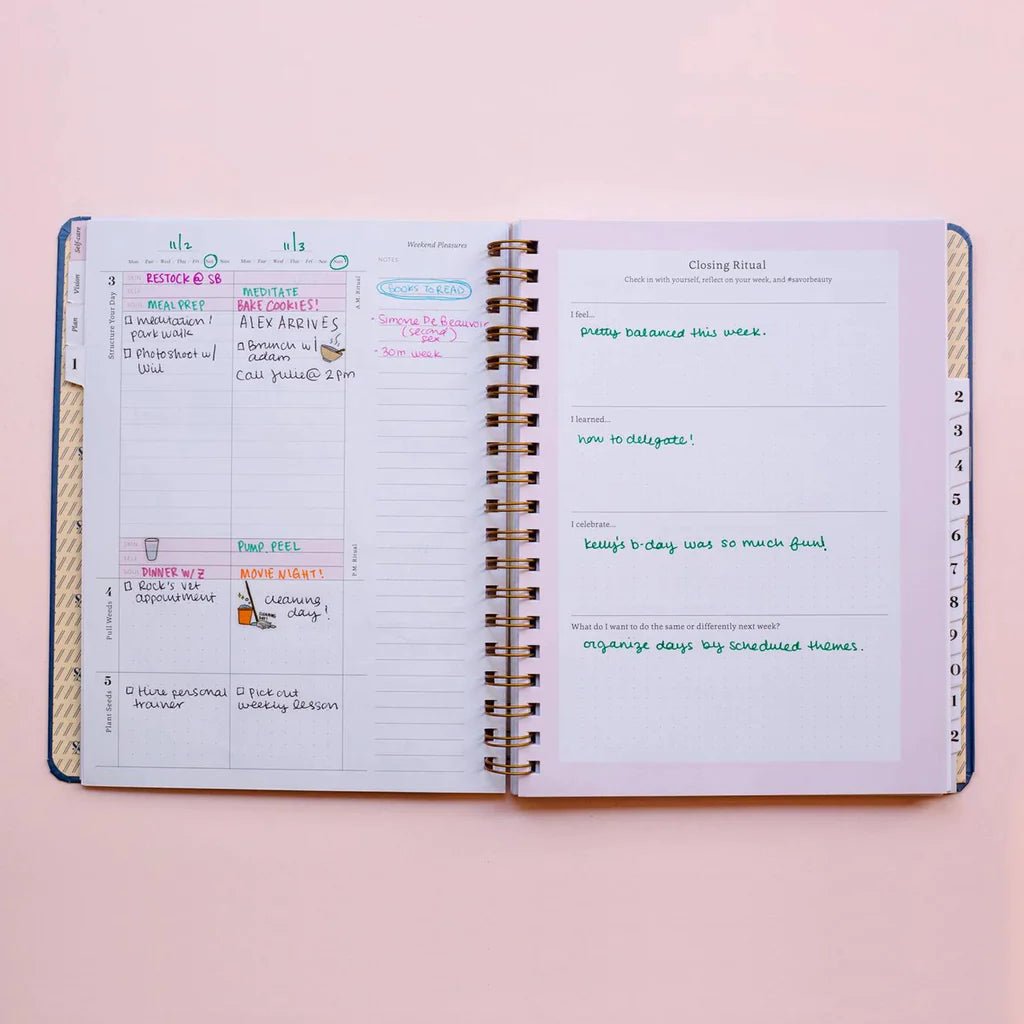 11/2
11/3
Weekend Pleasures
Mon - Tue - Wed - Thu - Fri - Sat - Sun
Mon - Tue - Wed - Thu - Fri - Sat - Sun
Self-care
Vision
Plan
1
3
Structure Your Day
SKIN RESTOCK @ SB
SELF
MEDITATE
SOUL MEAL PREP
BAKE COOKIES!
A.M. Ritual
meditation /
park walk
Photoshoot w/
Will
ALEX ARRIVES
Brunch w/
adam
Call Julie @ 2pm
SKIN
SELF
PUMP PEEL
SOUL DINNER W/ Z
MOVIE NIGHT!
P.M. Ritual
4
Pull Weeds
Rock's vet
appointment
cleaning
day!
5
Plant Seeds
Hire personal
trainer
Pick out
weekly lesson
NOTES
BOOKS TO READ
- Simone De Beauvoir
(second
sex)
- 30m week
Closing Ritual
Check in with yourself, reflect on your week, and #savorbeauty
I feel...
pretty balanced this week.
I learned...
how to delegate!
I celebrate...
Kelly's b-day was so much fun!
What do I want to do the same or differently next week?
organize days by scheduled themes.
2
3
4
5
6
7
8
9
0
1
2